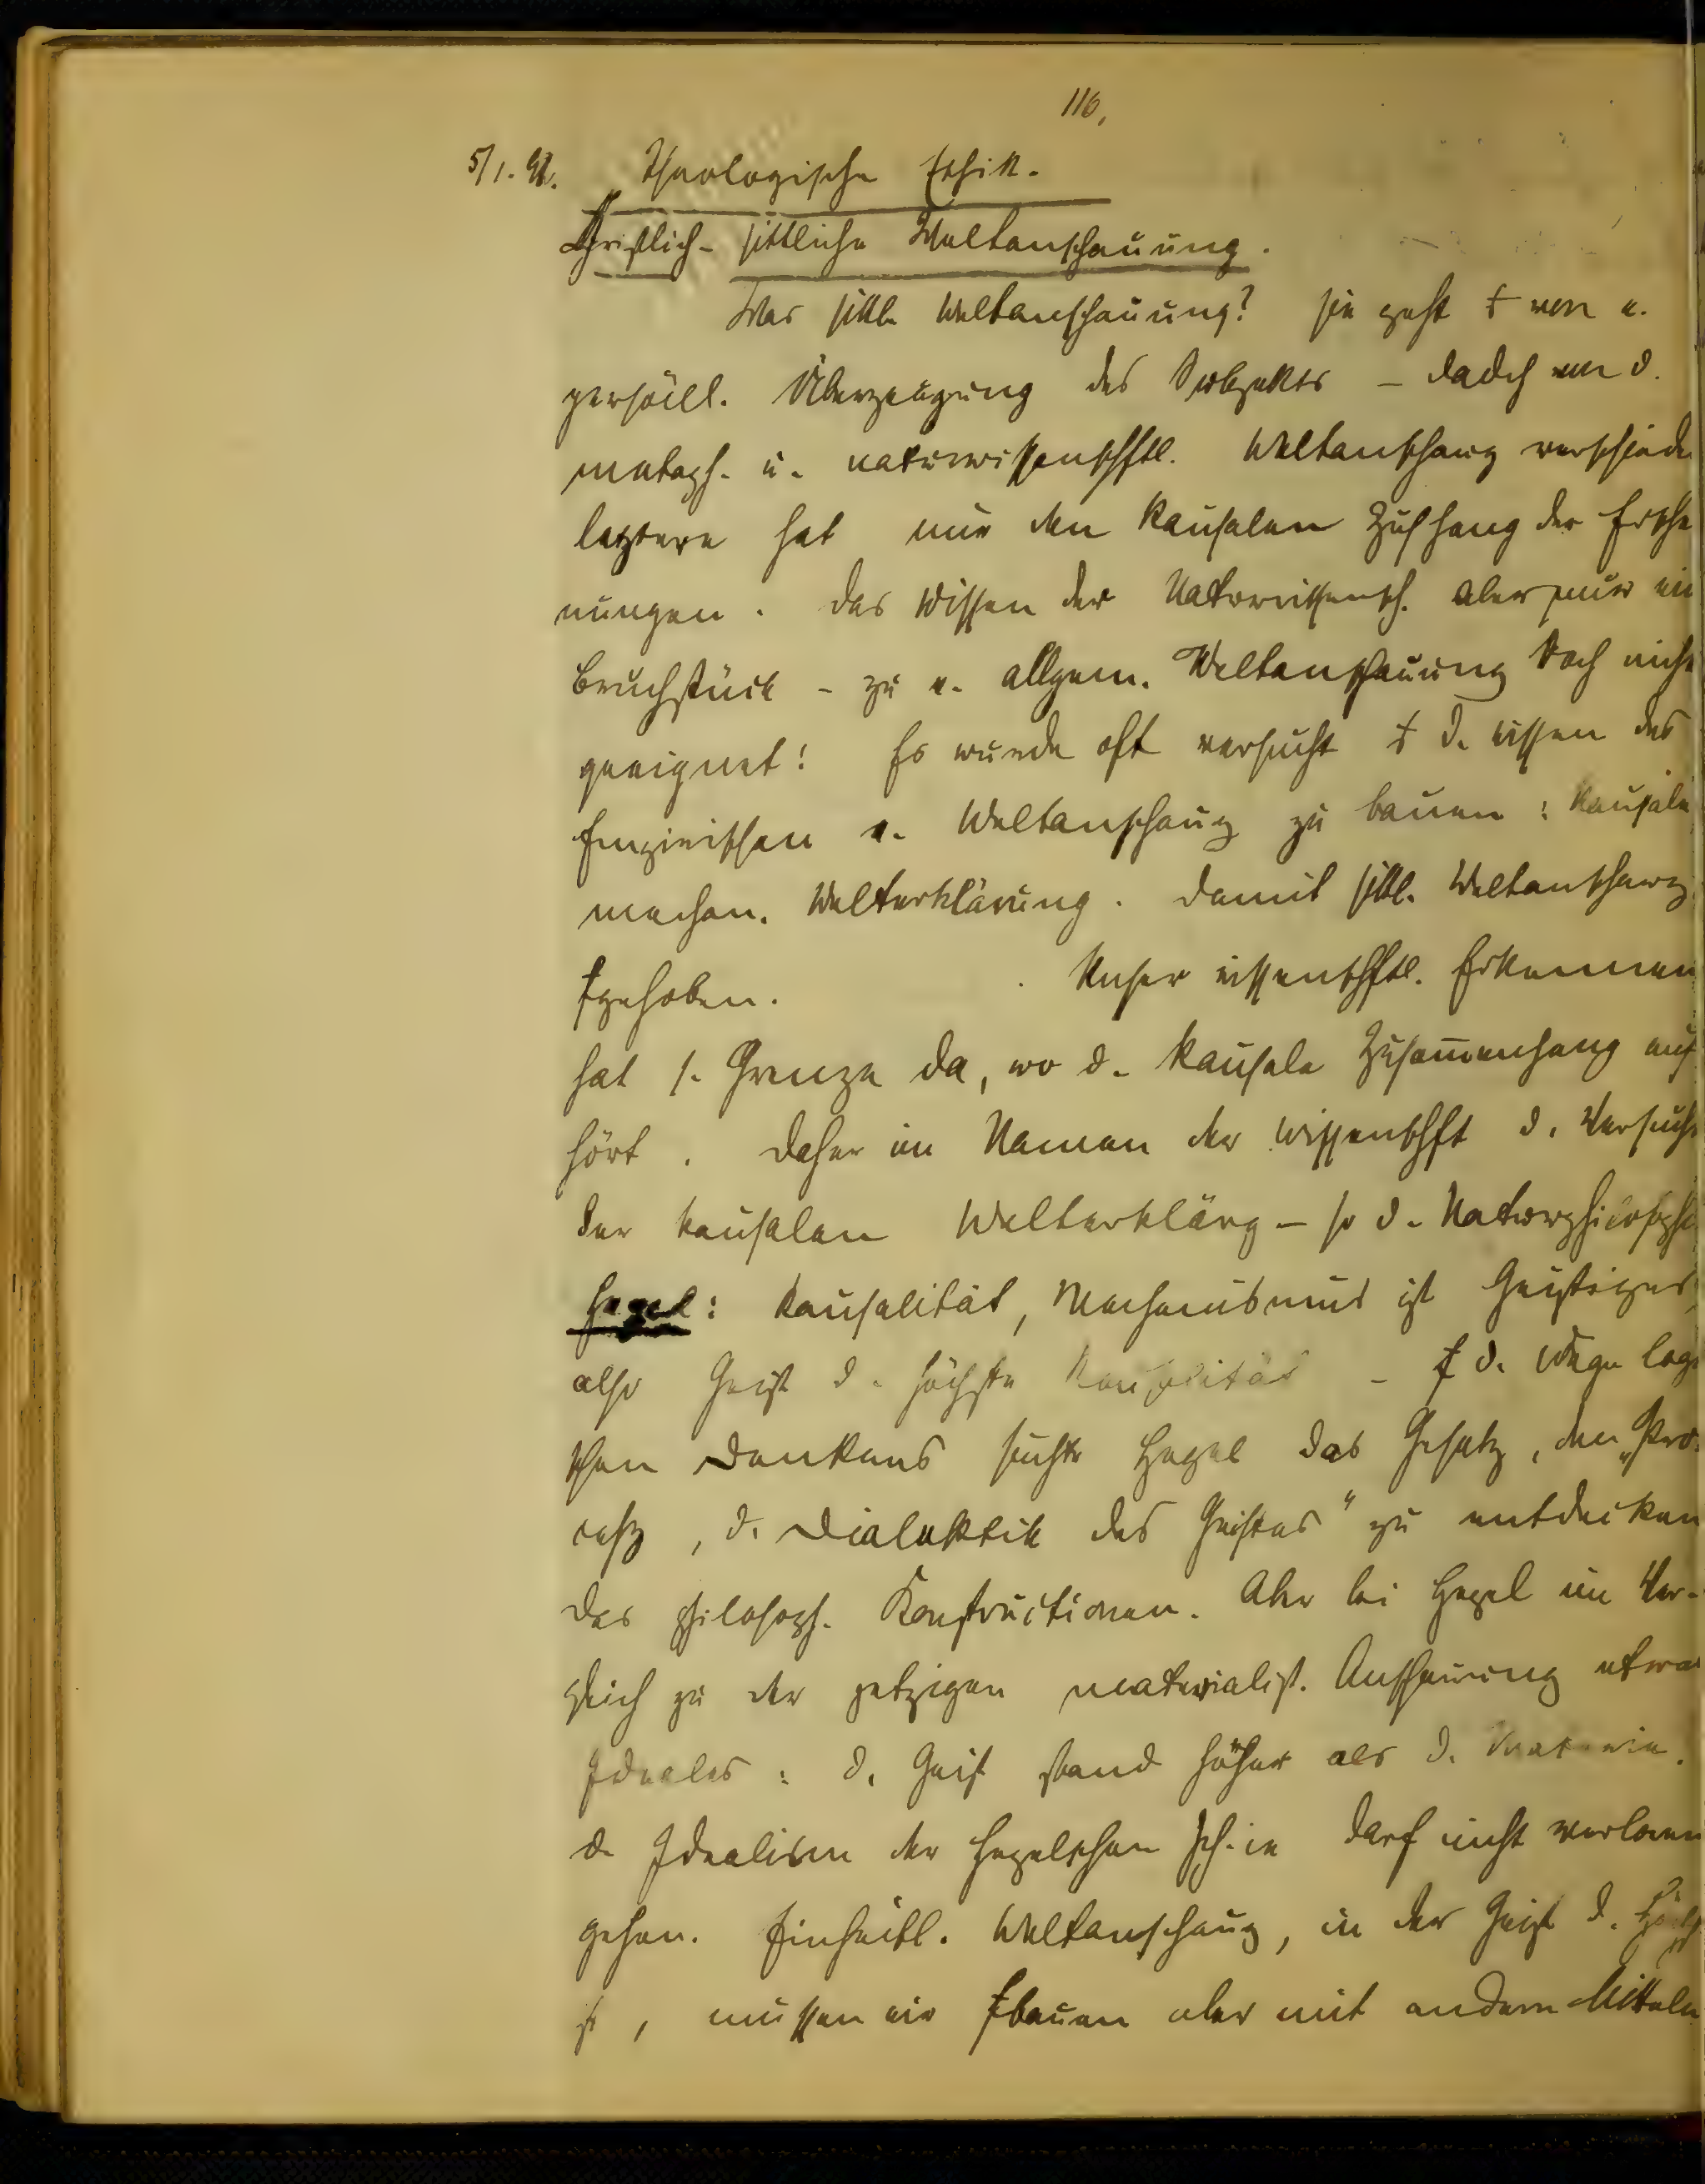 116,
5/1. 91. Theologische Ethik.
Christlich-sittliche Weltanschauung.
Was sittl. Weltanschauung? sie geht von e.
persöll. Überzeugung des Subjekts – dadch von d.
metaph. u. naturwissenschftl. Weltanschaug verschieden
letztere hat nur den kausalen Zushang der Erschei
nungen. Das Wissen der Naturwissensch. aber nur ein
Bruchstück – zu e. allgem. Weltanschauung noch nicht
geeignet! Es wurde oft versucht d. wissen des
Empirischen e. Weltanschaug zu bauen: kausale
mechan. Welterklärung. Damit sittl. Weltanschaug
gehoben. Unser wissenschftl. Erkennen
hat s. Grenze da, wo d. kausale Zusam̅enhang auf
hört. Daher im Namen der Wissenschft d. Versuch
der kausalen Welterklärg – so d. Naturphilosophie
Hegel: Kausalität, Mechanismus ist Geistiges,
also Geist d. höchste Kausalität – d. Wege logi
schen Denkens suchte Hegel das Gesetz, den „Pro
ceß, d. Dialektik des Geistes" zu entdecken
Das philosoph. Konstructionen. Aber bei Hegel im Ver-
gleich zu der jetzigen materialist. Anschauung etwas
Ideales: d. Geist stand höher als d. Materie.
d. Idealism der Hegelschen darf nicht verloren
gehen. Einheitl. Weltanschaug, in der Geist d. Höchste
ist, müssen wir bauen aber mit andern Mitteln